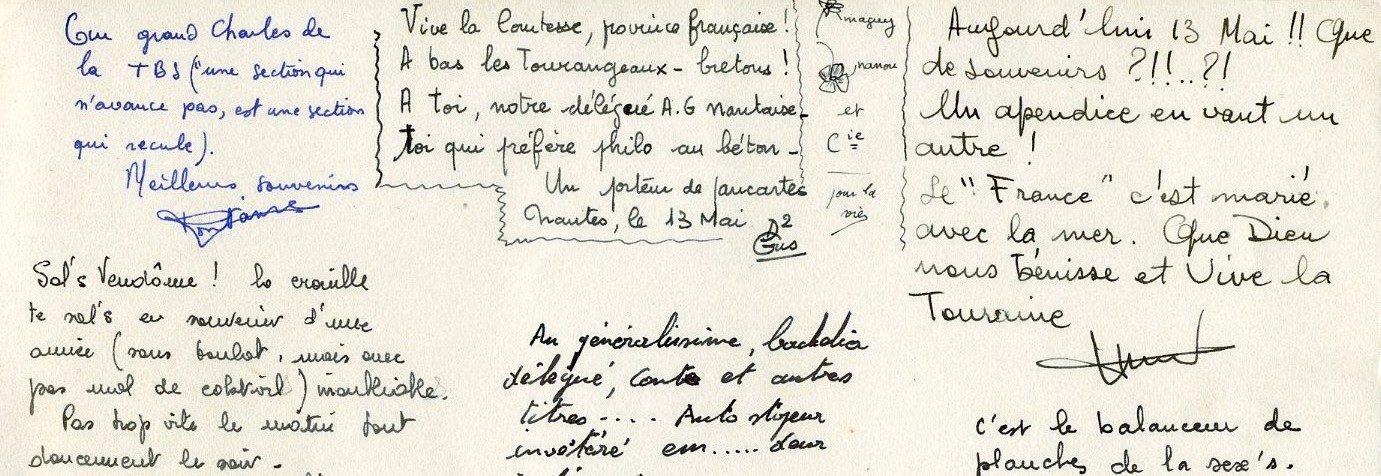 grand Charles de
la TBS ("une section qui
n'avance pas, est une section
qui recule).
Meilleurs souvenirs
Vive la Comtesse, province française!
A bas les Tourangeaux - bretons !
A toi, notre délégué A.G nantaise.
toi qui préfère philo au béton -
Un porteur de pancartes
Nantes, le 13 Mai
D2
Gus
maguy
nanou
et
Cie
pour la
Aujourd'hui 13 Mai !! Que
de souvenirs ?!!..?!
Un apendice en vaut un
autre !
Le "France" c'est marié
avec la mer. Que Dieu
nous bénisse et Vive la
Touraine
Sal's Vendôme ! la
te sal's en souvenir d'une
année (sans boulot, mais avec
pas mal de
Pas trop vite le matin tout
doucement le soir.
Au généralissime,
délégué, Conte et autres
titres .... Auto stopeur
invétéré em.....deur
c'est le balanceur de
planches de la sex's.